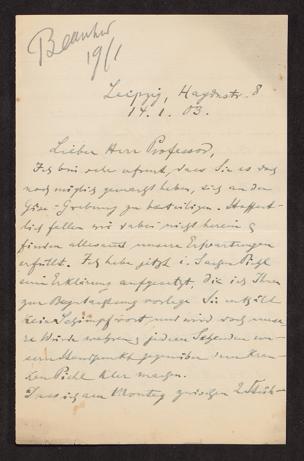 Beantw.
19/1
Leipzig, Haydnstr. 8
14. 1. 03.
Lieber Herr Professor,
Ich bin sehr erfreut, dass Sie es doch
noch möglich gemacht haben, sich an der
Gize-Grabung zu beteiligen. Hoffent-
lich fallen wir dabei nicht herein &
finden allesamt unsere Erwartungen
erfüllt. Ich habe jetzt i. Sachen Piehl
eine Erklärung aufgesetzt, die ich Ihnen
zur Begutachtung vorlege. Sie enthält
kein Schimpfwort und wird doch unse-
re Würde wahren & jedem Sehenden un-
sern Standpunkt gegenüber dem Kran-
ken Piehl klar machen.
Dass ich am Montag zwischen 2